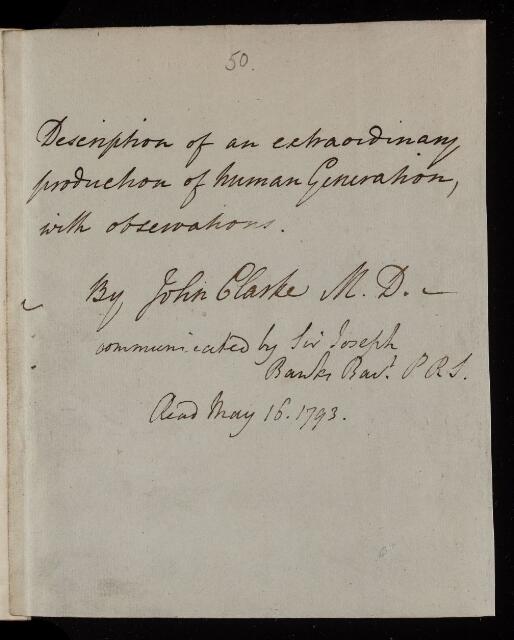 50.
Description of an extraordinary
production of human Generation,
with observations.
By John Clarke M. D. -
communicated by Sir Joseph
Banks Bart. P R S.
Read May 16. 1793.